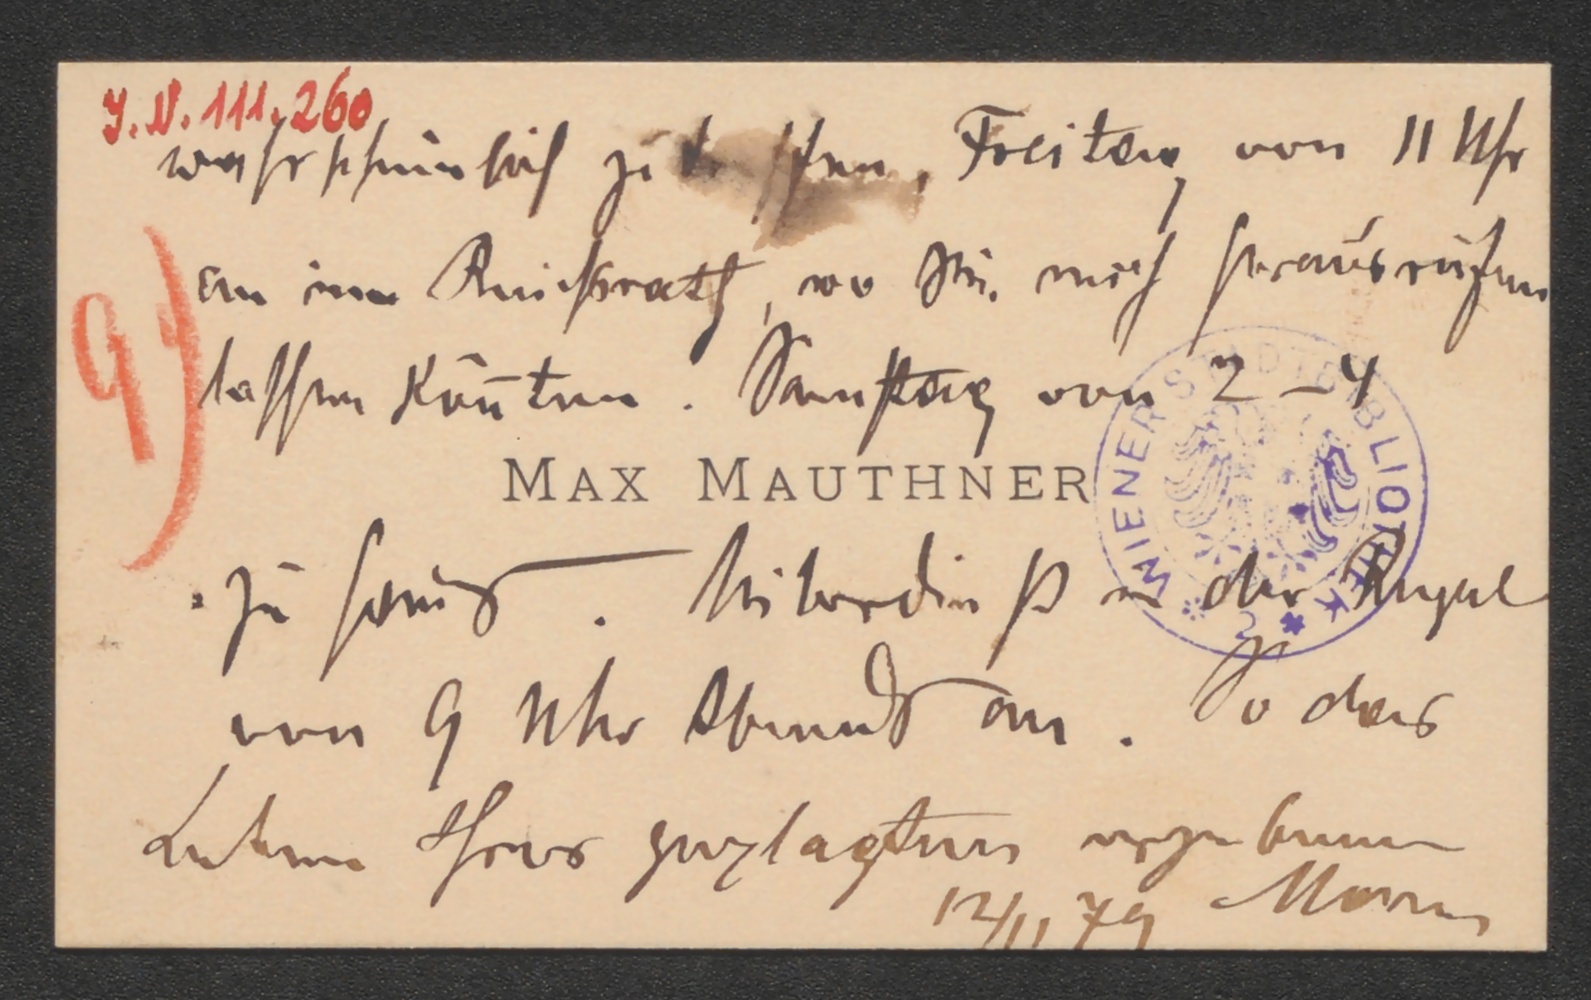 J.N. 111.260
wahrscheinlich zu treffen, Freitag von 11 Uhr
an im Reichsrath, wo Sie mich herausrufen
lassen könnten. Samstag von 2–4
9)
MAX MAUTHNER
WIENER STADTBIBLIOTHEK
2
zu Hause. in der Regel
von 9 Uhr Abends an.
Ihres ergebenen
12/11 79